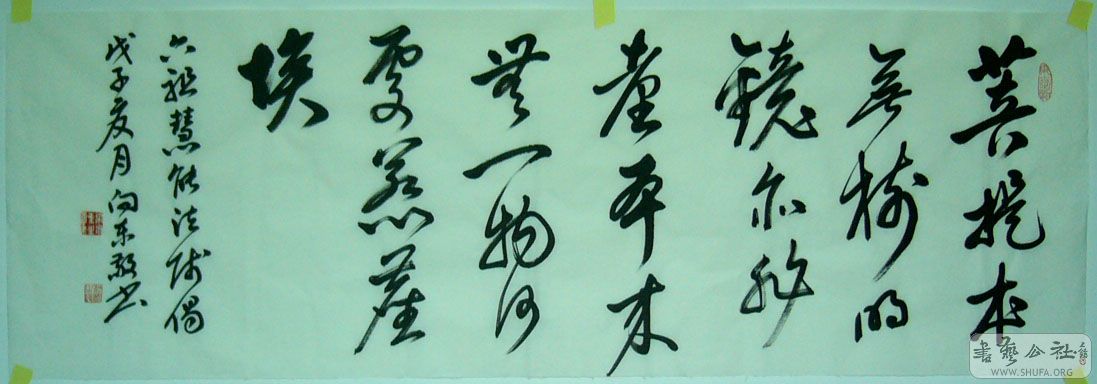 菩提本
無樹明
鏡亦非
臺本來
無一物何
處惹塵
埃
六祖慧能法師偈
戊子夏月向東敬書
書藝公社
WWW.SHUFA.ORG